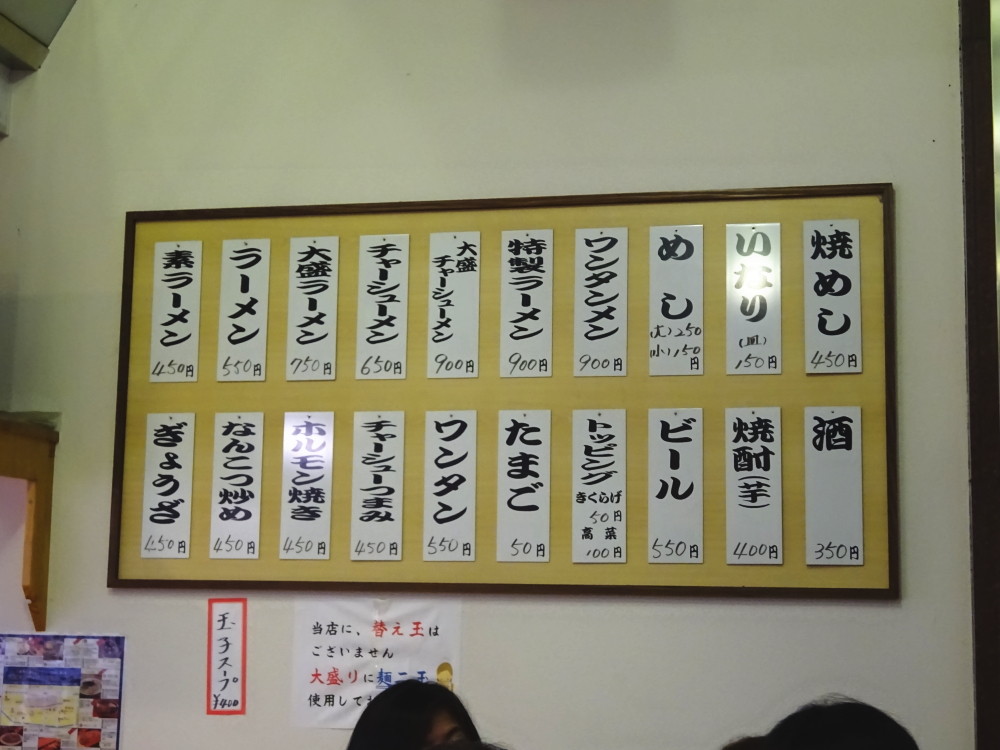 素ラーメン
450円
ラーメン
550円
大盛ラーメン
750円
チャーシューメン
650円
大盛
チャーシューメン
900円
特製ラーメン
900円
ワンタンメン
900円
めし
(大)250
(小)150
円
いなり
(皿)
150円
焼めし
450円
ぎょうざ
450円
なんこつ炒め
450円
ホルモン焼き
450円
チャーシューつまみ
450円
ワンタン
550円
たまご
50円
トッピング
きくらげ
50円
高菜
100円
ビール
550円
焼酎(芋)
400円
酒
350円
玉子スープ
¥400
当店に、替え玉は
ございません
大盛りに麺二玉
使用して